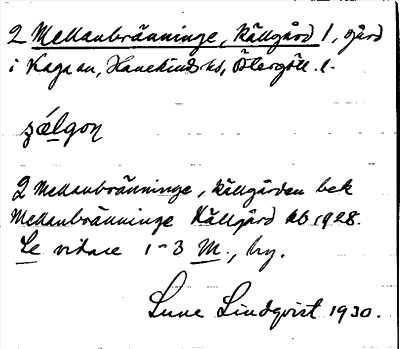 2 Mellanbränninge, Källgård 1, gård
i Kaga sn, Hanekinds hd, Östergötl. l.
çǽlgon
2 Mellanbränninge, källgården bek
Mellanbränninge Källgård kb 1928.
Se vidare 1-3 M., bry.
Sune Lindqvist 1930.